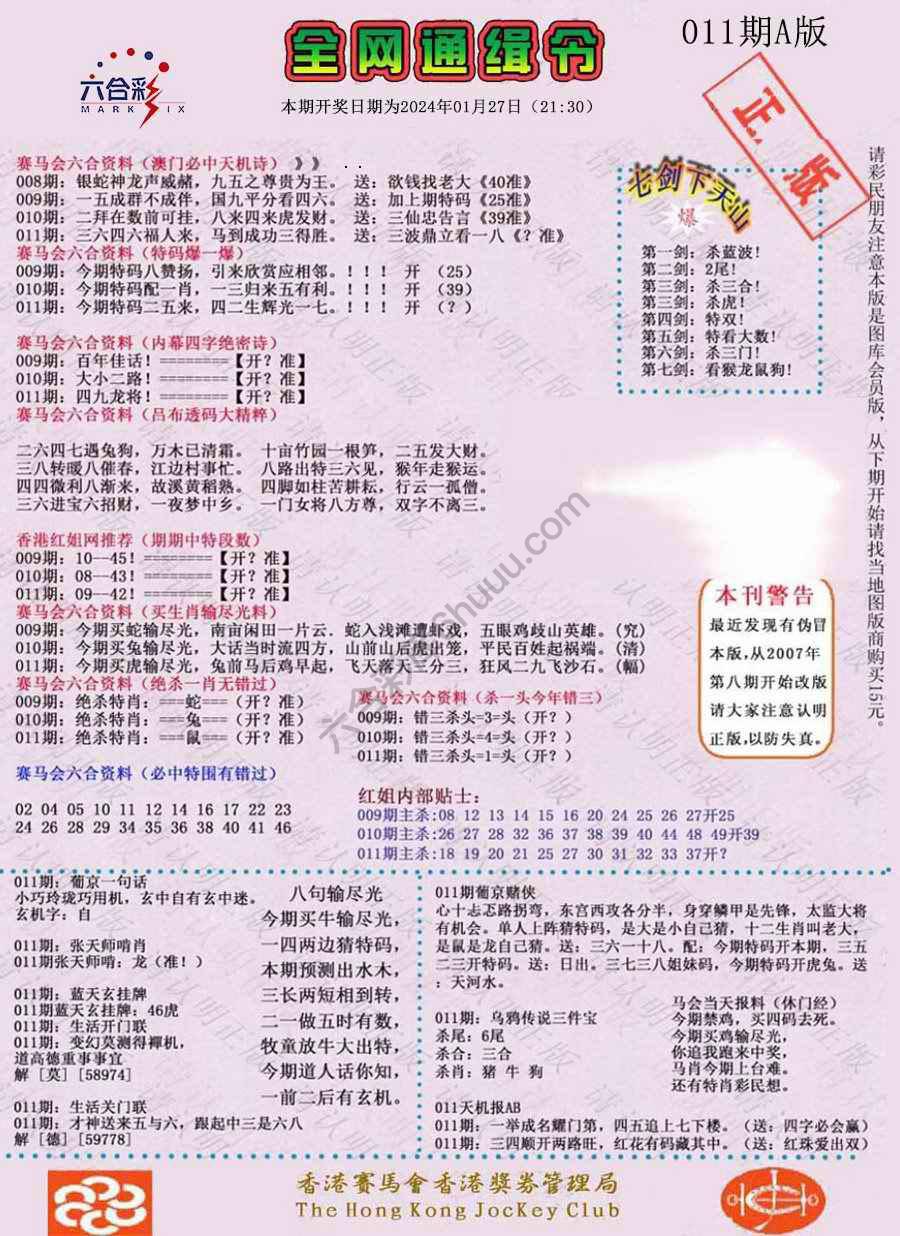 011期A版
全网通缉令
六合彩
MARK SIX
本期开奖日期为2024年01月27日（21:30）
正版
请彩民朋友注意本版是图库会员版，从下期开始请找当地图版商购买15元。
赛马会六合资料（澳门必中天机诗）》》 . .
008期：银蛇神龙声威赭，九五之尊贵为王。 送：欲钱找老大《40准》
009期：一五成群不成伴，国九平分看四六。 送：加上期特码《25准》
010期：二拜在数前可挂，八来四来虎发财。 送：三仙忠告言《39准》
011期：三六四六福人来，马到成功三得胜。 送：三波鼎立看一八《？准》
赛马会六合资料（特码爆一爆）
009期：今期特码八赞扬，引来欣赏应相邻。！！！ 开 （25）
010期：今期特码配一肖，一三归来五有利。！！！ 开 （39）
011期：今期特码二五来，四二生辉光一七。！！！ 开 （？）
七剑下天山
爆
第一剑：杀蓝波!
第二剑：2尾!
第三剑：杀三合!
第三剑：杀虎!
第四剑：特双!
第五剑：特看大数!
第六剑：杀三门!
第七剑：看猴龙鼠狗!
赛马会六合资料（内幕四字绝密诗）
009期：百年佳话！========【开？准】
010期：大小二路！========【开？准】
011期：四九龙将！========【开？准】
赛马会六合资料（吕布透码大精粹）
二六四七遇兔狗，万木已清霜。 十亩竹园一根笋，二五发大财。
三八转暖八催春，江边村事忙。 八路出特三六见，猴年走猴运。
四四微利八渐来，故溪黄稻熟。 四脚如柱苦耕耘，行云一孤僧。
三六进宝六招财，一夜梦中乡。 一门女将八方尊，双字不离三。
香港红姐网推荐（期期中特段数）
009期：10--45！========【开？准】
010期：08--43！========【开？准】
011期：09--42！========【开？准】
赛马会六合资料（买生肖输尽光料）
009期：今期买蛇输尽光，南亩闲田一片云．蛇入浅滩遭虾戏，五眼鸡歧山英雄。（究）
010期：今期买兔输尽光，大话当时流四方，山前山后虎出笼，平民百姓起祸端。（清）
011期：今期买虎输尽光，兔前马后鸡早起，飞天落天三分三，狂风二九飞沙石。（幅）
赛马会六合资料（绝杀一肖无错过）
009期：绝杀特肖：===蛇===（开？准）
010期：绝杀特肖：===兔===（开？准）
011期：绝杀特肖：===鼠===（开？准）
赛马会六合资料（杀一头今年错三）
009期：错三杀头=3=头（开？）
010期：错三杀头=4=头（开？）
011期：错三杀头=1=头（开？）
本刊警告
最近发现有伪冒
本版,从2007年
第八期开始改版
请大家注意认明
正版,以防失真。
赛马会六合资料（必中特围有错过）
02 04 05 10 11 12 14 16 17 22 23
24 26 28 29 34 35 36 38 40 41 46
红姐内部贴士：
009期主杀:08 12 13 14 15 16 20 24 25 26 27开25
010期主杀:26 27 28 32 36 37 38 39 40 44 48 49开39
011期主杀:18 19 20 21 25 27 30 31 32 33 37开？
011期：葡京一句话
小巧玲珑巧用机，玄中自有玄中迷。
玄机字：自
011期：张天师啃肖
011期张天师啃：龙（准！）
011期：蓝天玄挂牌
011期蓝天玄挂牌：46虎
011期：生活开门联
011期：变幻莫测得禪机，
道高德重事事宜
解 [莫] [58974]
011期：生活关门联
011期：才神送来五与六，跟起中三是六八
解 [德] [59778]
八句输尽光
今期买牛输尽光，
一四两边猜特码，
本期预测出水木，
三长两短相到转，
二一做五时有数，
牧童放牛大出特，
今期道人话你知，
一前二后有玄机。
011期葡京赌侠
心十志忑路拐弯，东宫西攻各分半，身穿鳞甲是先锋，太监大将
有机会。单人上阵猜特码，是大是小自己猜，十二生肖叫老大，
是鼠是龙自己猜。送：三六一十八。配：今期特码开本期，三五
二三开特码。送：日出。三七三八姐妹码，今期特码开虎兔。送
：天河水。
011期：乌鸦传说三件宝
杀尾：6尾
杀合：三合
杀肖：猪 牛 狗
马会当天报料（休门经）
今期禁鸡，买四码去死。
今期买鸡输尽光，
你追我跑来中奖，
马肖今期上台难。
还有特肖彩民想。
011天机报AB
011期：一举成名耀门第，四五追上七下楼。（送：四字必会赢）
011期：三四顺开两路旺，红花有码藏其中。（送：红珠爱出双）
香港賽馬會香港獎券管理局
The Hong Kong JocKey Club